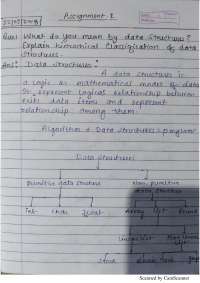 Assignment-1
Que: What do you mean by data structures?
Explain hierarchical classification of data
structures.
Ans: Data Structures:
A data structure is
a logic as mathematical model of data
represent logical relationship between
data items and represent
relationship among them.
Algorithm + Data Structures = program
Data Structures
Primitive data structure Non-primitive
data structure
Int Char float Array List
Linear list Non-linear
list
Stack Queue
Scanned by CamScanner